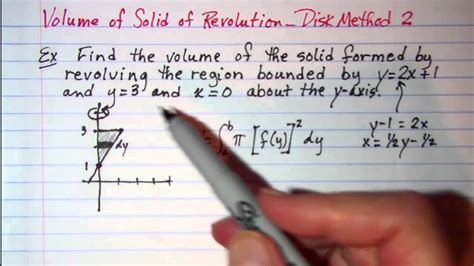 Volume of Solid of Revolution - Disk Method 2
Ex Find the volume of the solid formed by
revolving the region bounded by y=2x+1
and y=3 and x=0 about the y-axis.
3
dy
1
∫ b π [f(y)]² dy
y-1=2x
x=½y-½